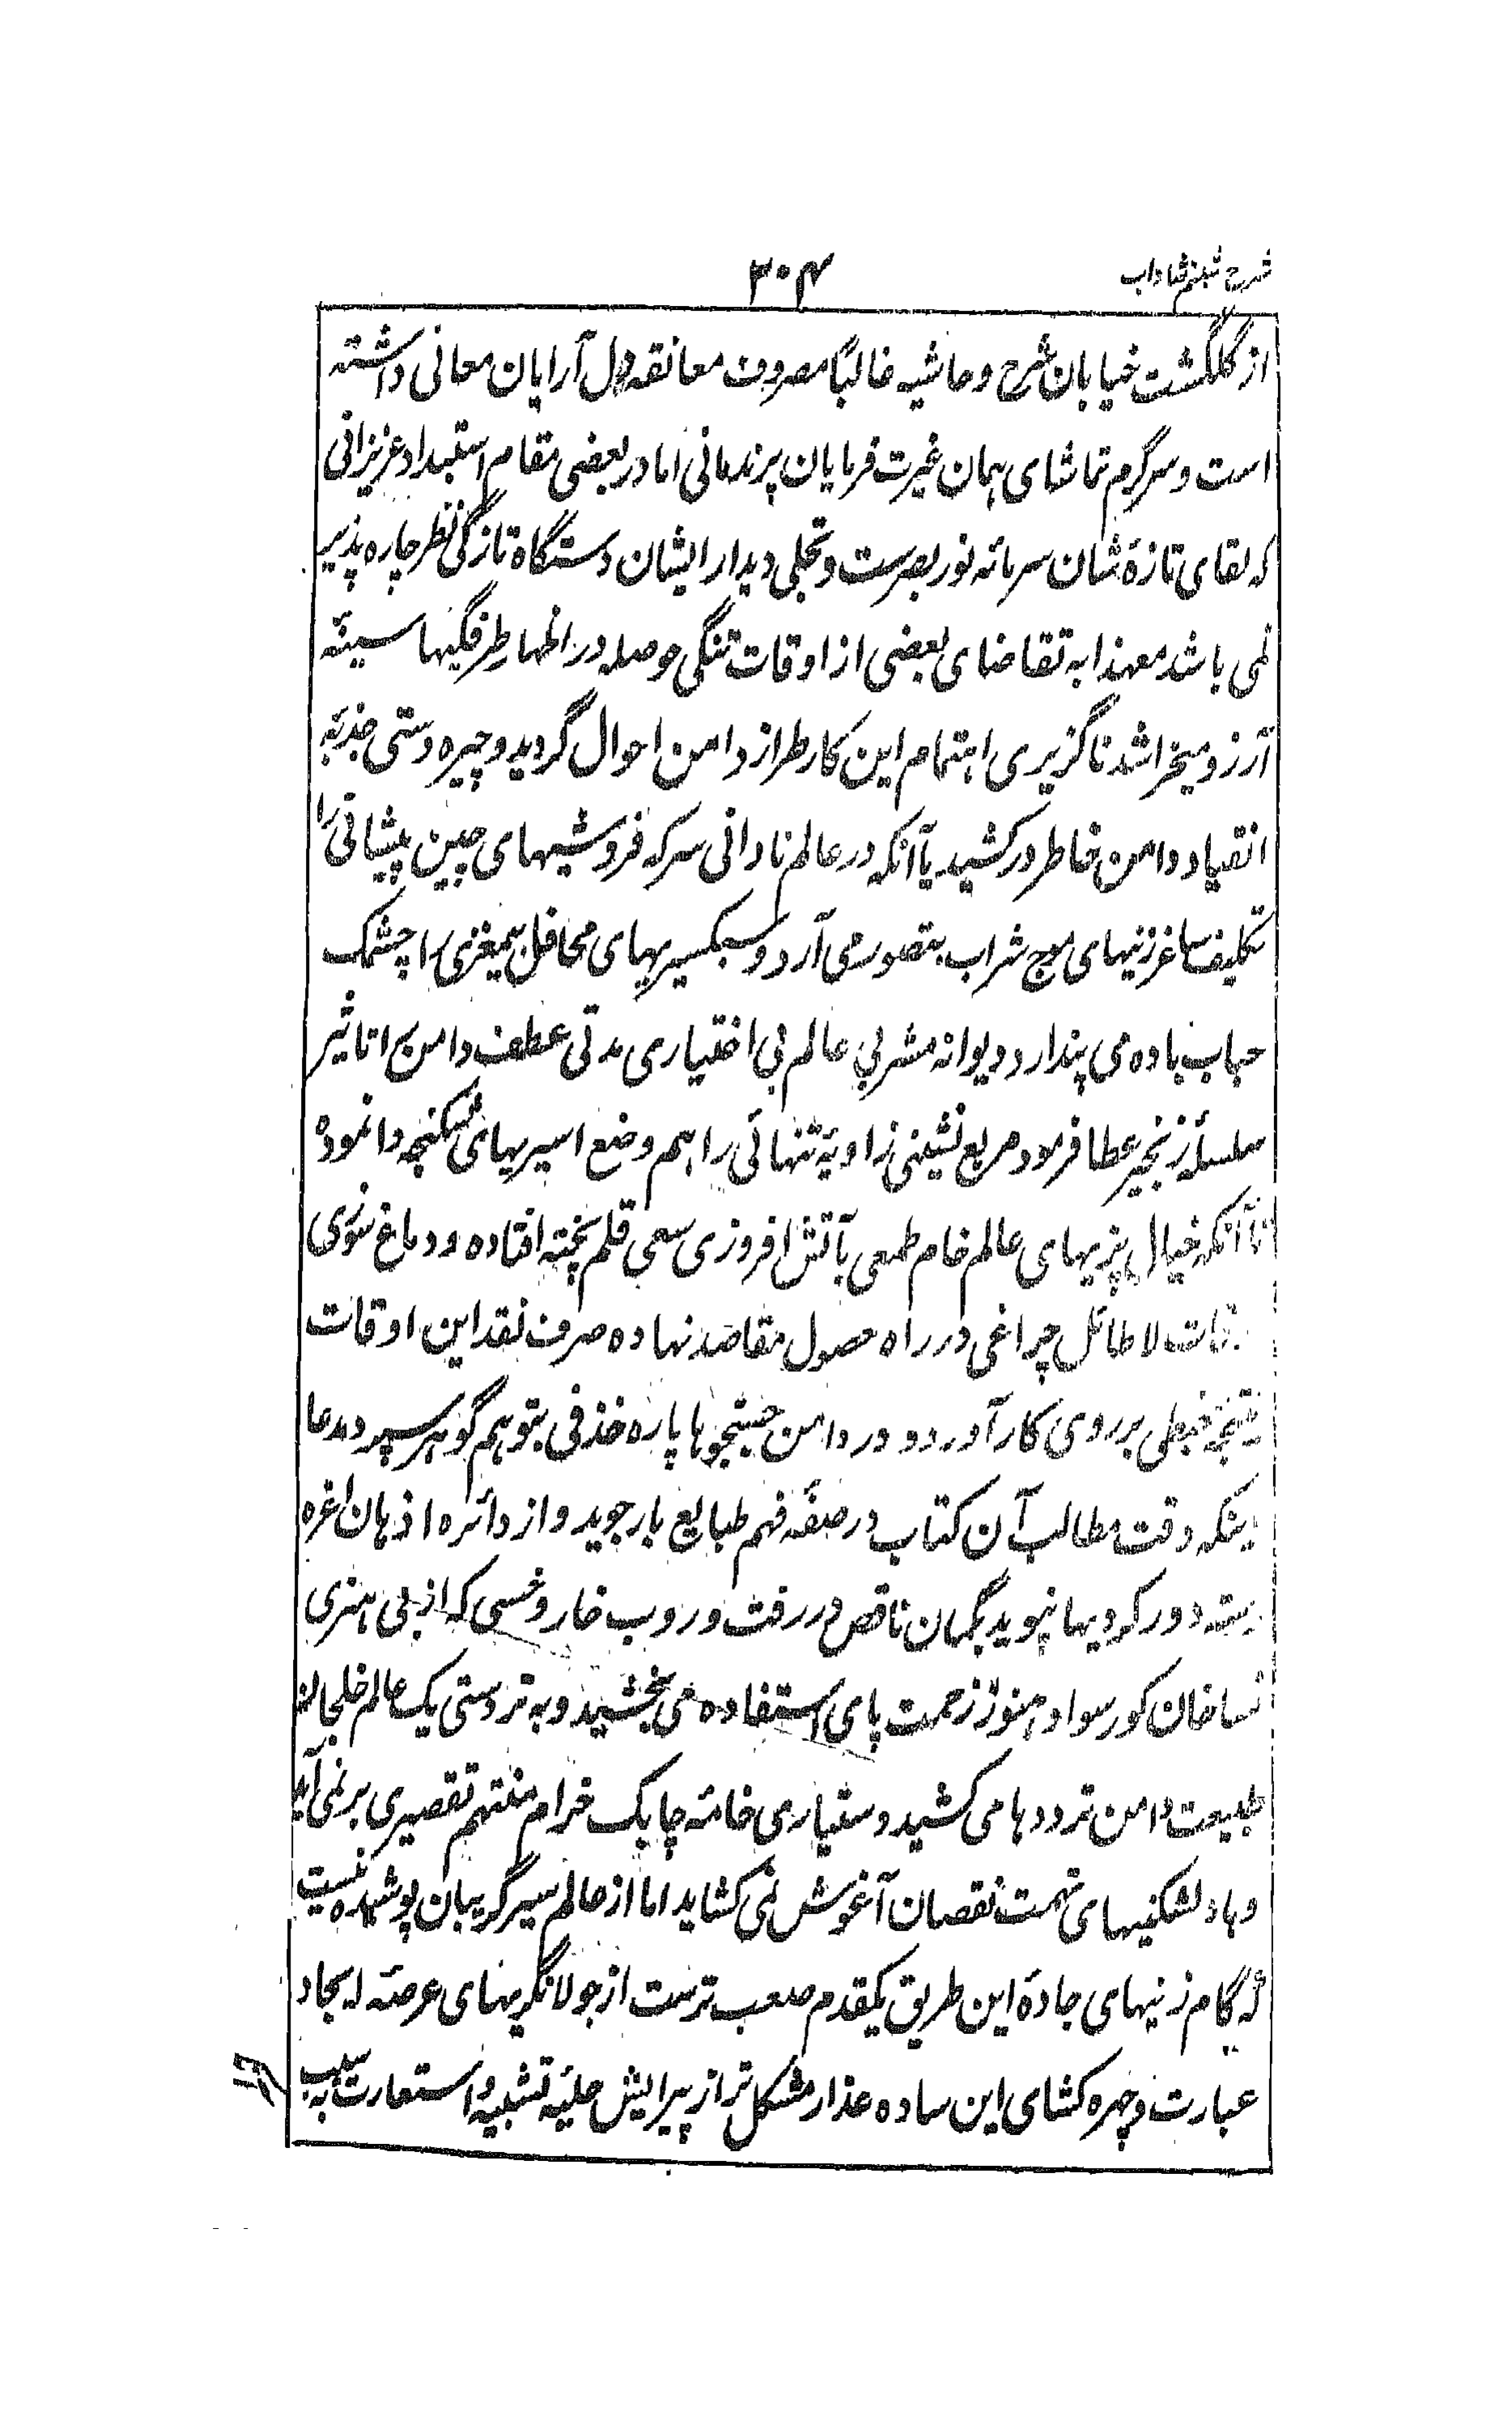 شرح شبنم شاداب
۳۰۴
از گلگشت خیابان شرح و حاشیه غالباً مصروف معانقه دل آرایان معانی داشته
است و سرگرم تماشای همان غیرت فرمایان پرندمانی اما در بعضی مقام استبداد عزیزانی
که لقای تازهٔ شان سرمائه نور بصرست و تجلی دیدار ایشان دستگاه تازگی نظر چاره پذیر
نمی باشد معهذا به تقاضای بعضی از اوقات تنگی حوصله در اظهار طرفگیها سینهٔ
آرزو میخراشد ناگزیری اهتمام این کار طراز دامن احوال گردید و چیره دستی جذبهٔ
انقیاد دامن خاطر درکشید یا آنکه در عالم نادانی سرکه فروشیهای چین پیشانی را
تکلیف ساغر زنیهای موج شراب بتصور می آرد و سبکسیریهای محافل بیمغزی را چشمک
حباب باده می پندارد دیوانه مشربی عالم بی اختیاری مدتی عطف دامن مرا تاثیر
سلسلهٔ زنجیر عطا فرمود مربع نشینی زاویهٔ تنهائی را هم وضع اسیریهای شکنجه وانموده
تا آنکه خیال پزیهای عالم خام طمعی بآتش افروزی سعی قلم پخته افتاده و دماغ سوزی
لا طائل چراغی در راه حصول مقاصد نهاده صرف نقد این اوقات
نتیجه خبطی بر روی کار آورد و در دامن جستجوها پاره خذفی بتوهم گوهر سپرد مدعا
اینکه دقت مطالب آن کتاب در صفهٔ فهم طبایع بار جوید و از دائره اذهان اغره
دور گردیها نپوید بگمان ناقص در رفت و روب خار و خسی که از بی هنری
شناخان کور سواد هنوز زحمت پای استفاده می بخشید و به تردستی یک عالم خلجانه
طبیعت دامن ترددها می کشید دستیاری خامهٔ چابک خرام متهم تقصیری بر نمی آید
و با دلشکنیهای تهمت نقصان آغوش نمی کشاید اما از عالم سیر گریبان پوشیده نیست
که گام زنیهای جادهٔ این طریق یکقدم صعب ترست از جولانگریهای عرصهٔ ایجاد
عبارت و چهره کشای این ساده عذار مشکل تر از پیرایش حلیهٔ تشبیه و استعارت به سبب